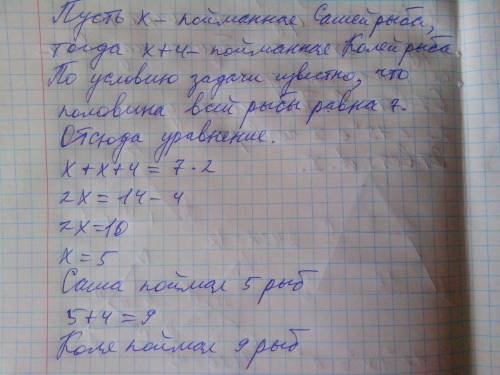 Пусть х – пойманная Сашей рыба,
тогда х+4 – пойманная Колей рыба
По условию задачи известно, что
половина всей рыбы равна 7.
Отсюда уравнение.
х + х + 4 = 7 · 2
2х = 14 – 4
2х = 10
х = 5
Саша поймал 5 рыб
5 + 4 = 9
Коля поймал 9 рыб